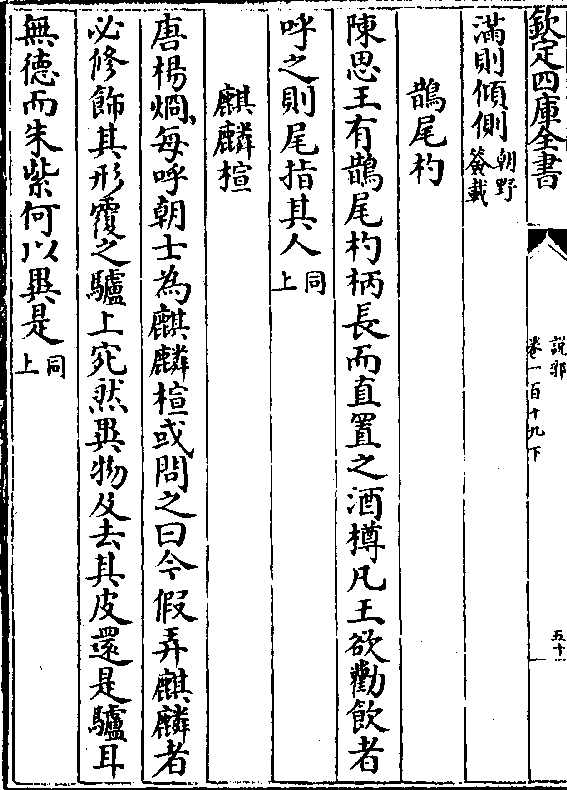 欽定四庫全書
說郛
卷一百十九下
五十
滿則傾側朝野僉載
鵲尾杓
陳思王有鵲尾杓柄長而直置之酒樽凡王欲勸飲者
呼之則尾指其人同上
麒麟楦
唐楊烱每呼朝士為麒麟楦或問之曰今假弄麒麟者
必修飾其形覆之驢上宛然異物及去其皮還是驢耳
無德而朱紫何以異是同上